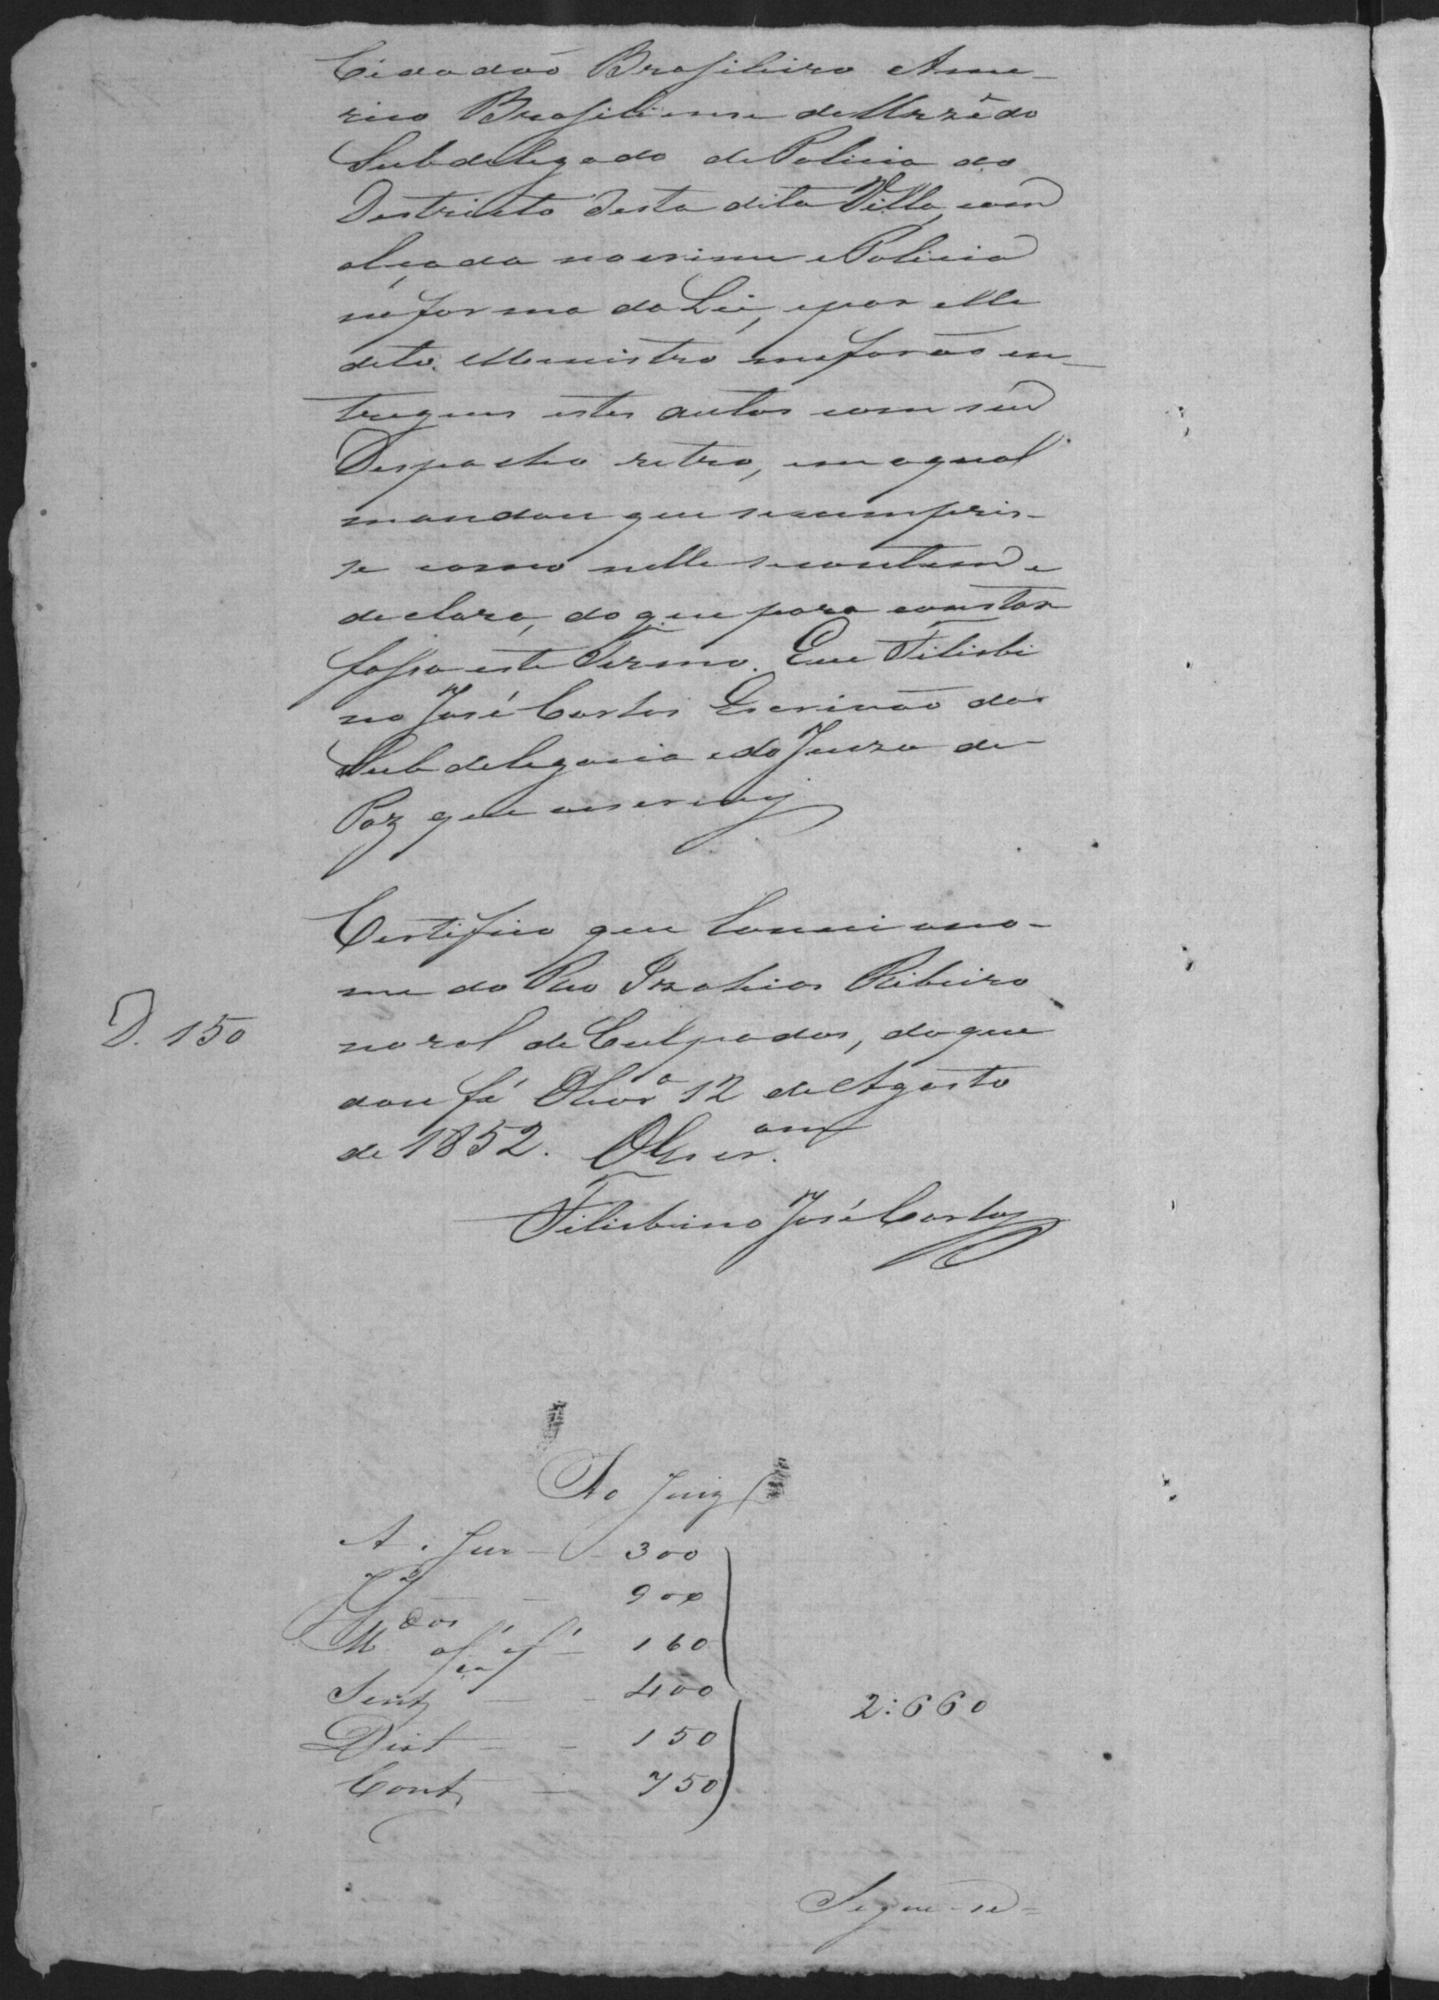 Cidadaõ Brasileiro Ame-
rico Brasiliense de
Subdelegado de Policia do
Destricto desta dita Villa, com
alçada no crime e Policia
na forma da Lei, e por elle
dito Menistro me foraõ en-
tregues estes autos com seu
Despacho retro, em o qual
mandou que se cumpris-
se como nelle se contem e
declara, do que para constar
fasso este Termo. Eu Felisbi
no José Cortes Escrivaõ da
Subdelegacia e do Juizo de
Paz que o escrevy
Certifico que lancei o no-
me do Reo Izahias Ribeiro
D. 150
no rol de Culpados, do que
dou fé 12 de Agosto
de 1852. O Escr.am
Felisbino José Cortes
Ao Juiz
A. Jur - 300
900
M.dos 160
Sentª - 400
Dist - 150
Contª - 750
2:660
Segue-se =